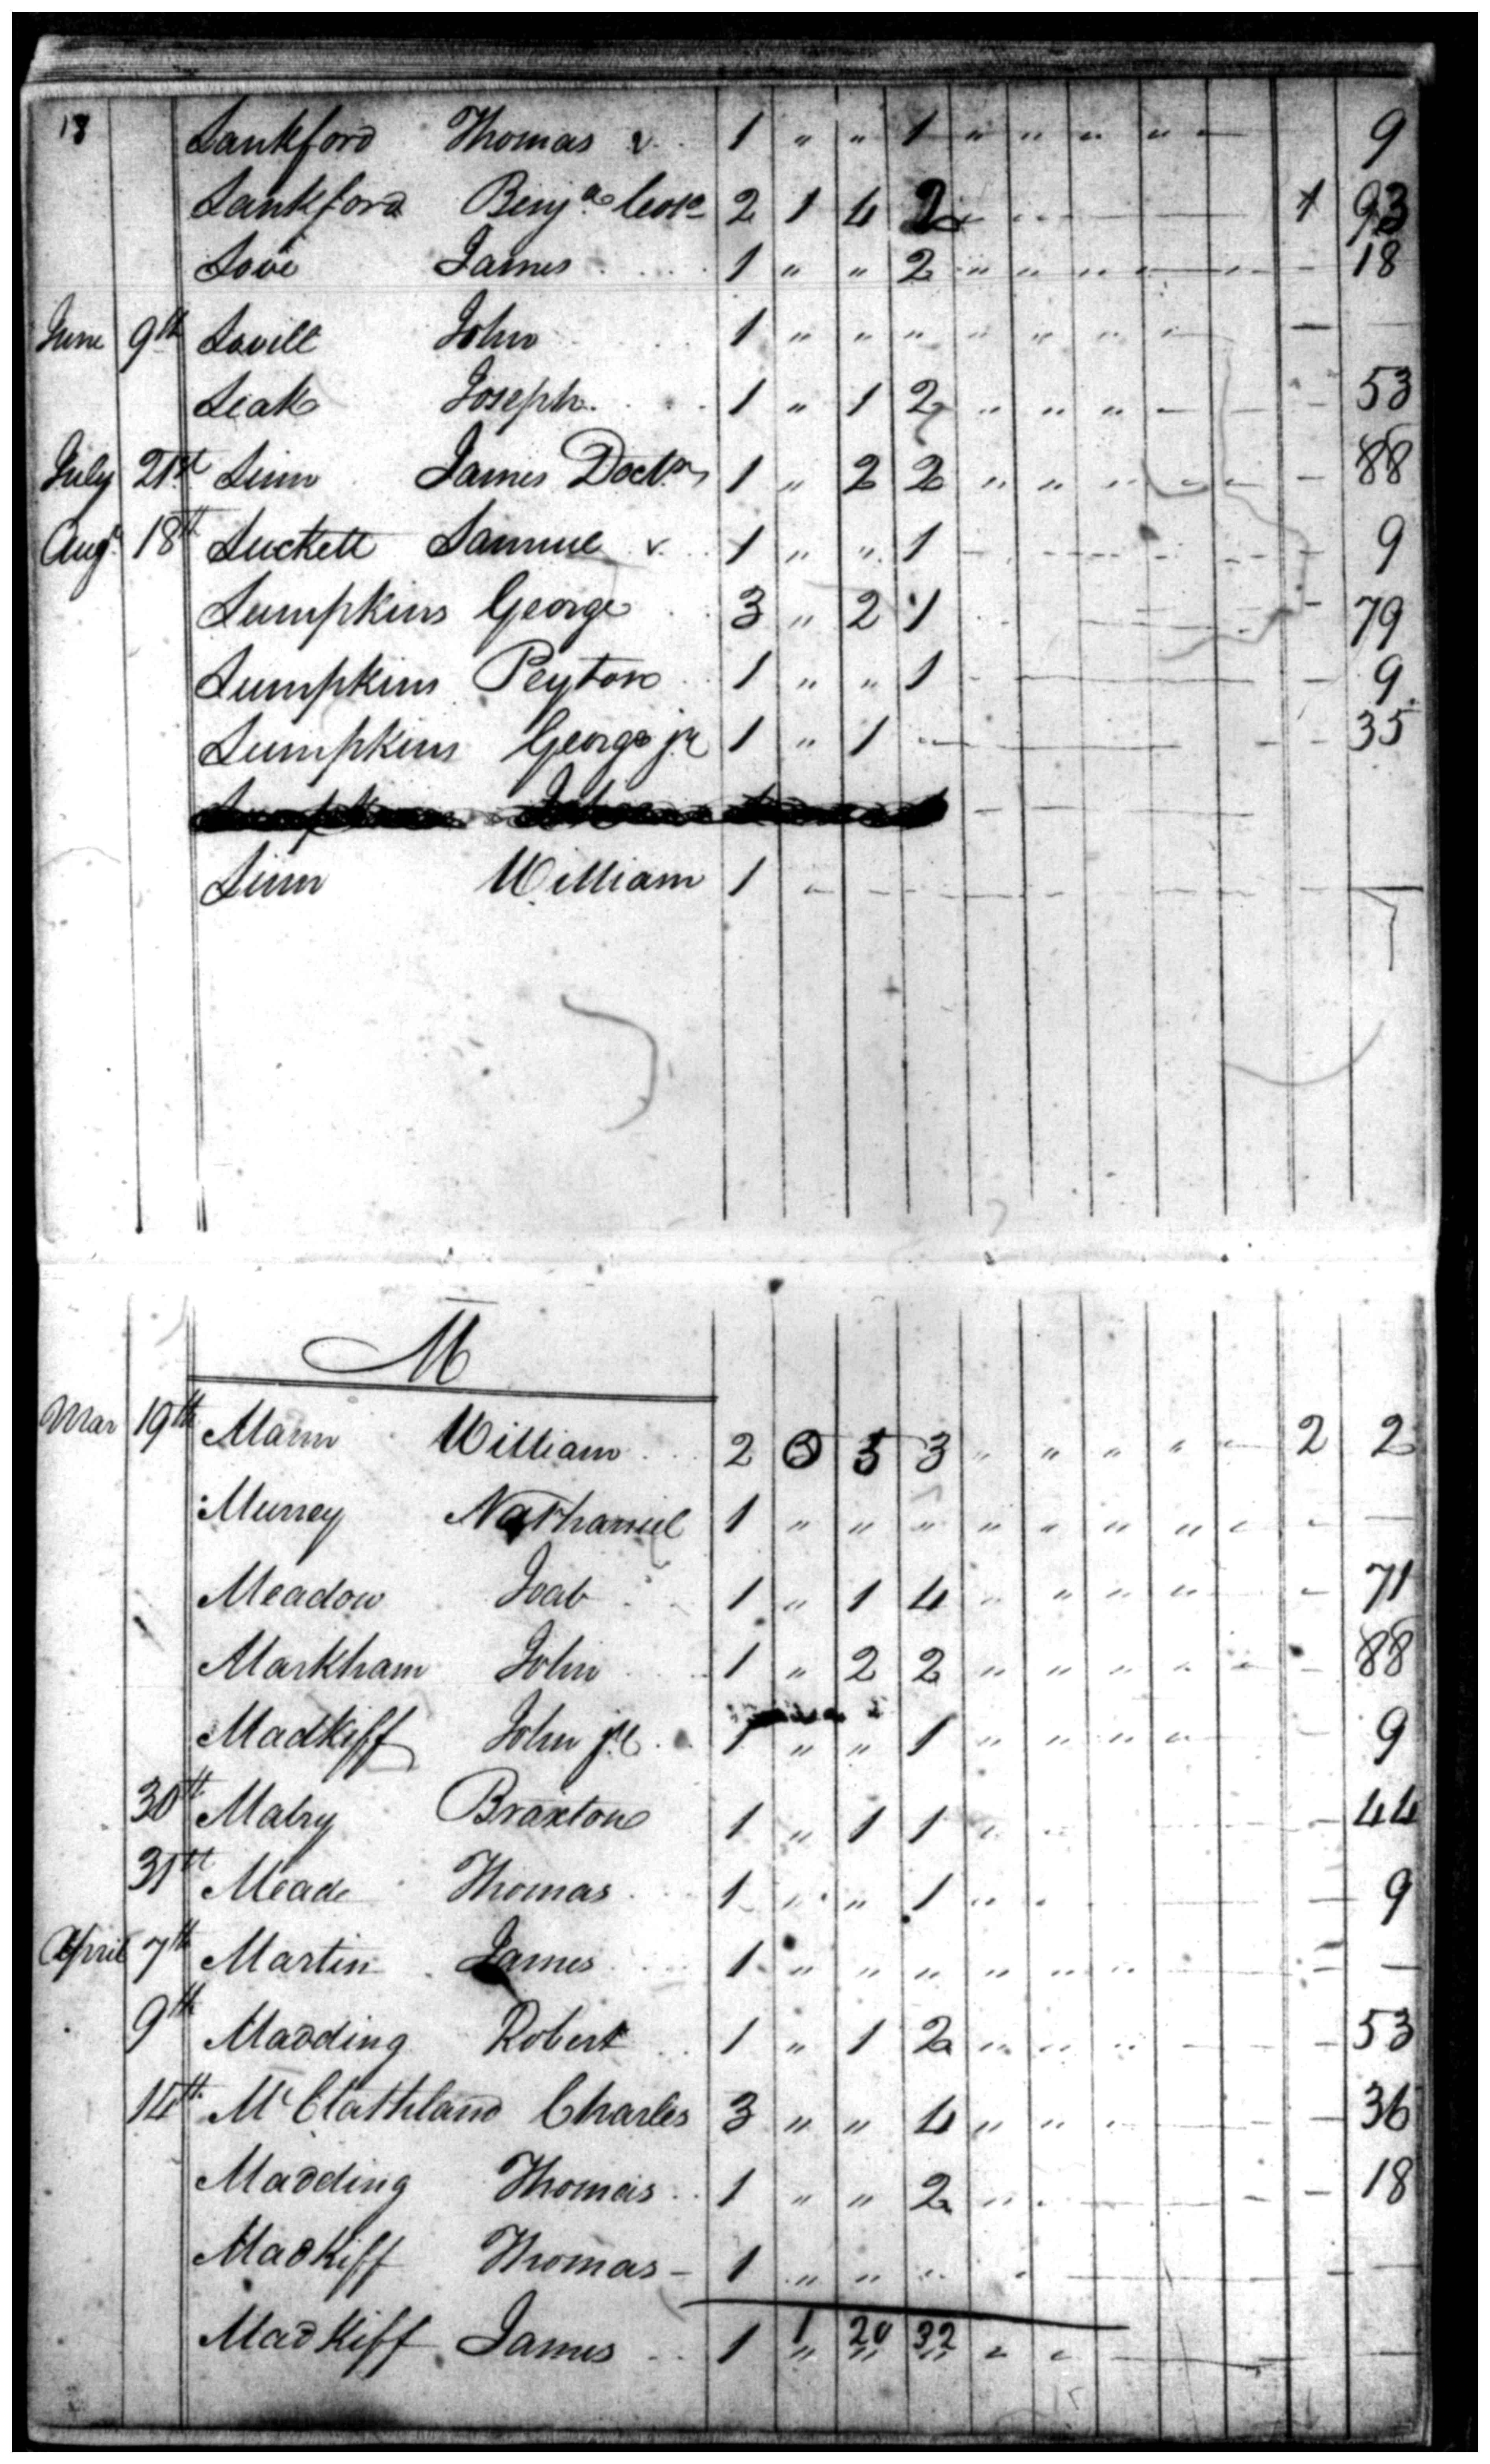 18 Lankford Thomas v 1 " " 1 " " " " - 9
Lankford Benja 2 1 4 2 - - - - 1 93
Love James 1 " " 2 " " " " - - - 18
June 9th Lovell John 1 " " " " " " " - - -
Leak Joseph 1 " 1 2 " " " - - - 53
July 21st Linn James Doctr 1 " 2 2 " " " - - - 88
Augt 18th Luckett Samuel v 1 " " 1 - - - - - - 9
Lumpkins George 3 " 2 1 - - - - 79
Lumpkins Peyton 1 " " 1 - - - - 9
Lumpkins George jr 1 " 1 - - - - 35
Linn William 1 - - - - - - -
M
Mar 19th Mann William 2 3 5 3 " " " " - 2 2
Murrey Nathaniel 1 " " " " " " " - - -
Meadow Joab 1 " 1 4 " " " " - - 71
Markham John 1 " 2 2 " " " " - - 88
Madkiff John jr 1 " " 1 " " " " - 9
30th Mabry Braxton 1 " 1 1 " - - - 44
31st Meade Thomas 1 " " 1 " - - - 9
April 7th Martin James 1 " " " " " " - -
9th Madding Robert 1 " 1 2 " " " - - - 53
14th Mc Clathland Charles 3 " " 4 " " - - - 36
Madding Thomas 1 " " 2 " - - - 18
Madkiff Thomas - 1 " " " - - -
1 20 32
Madkiff James 1 " " " " " - - -